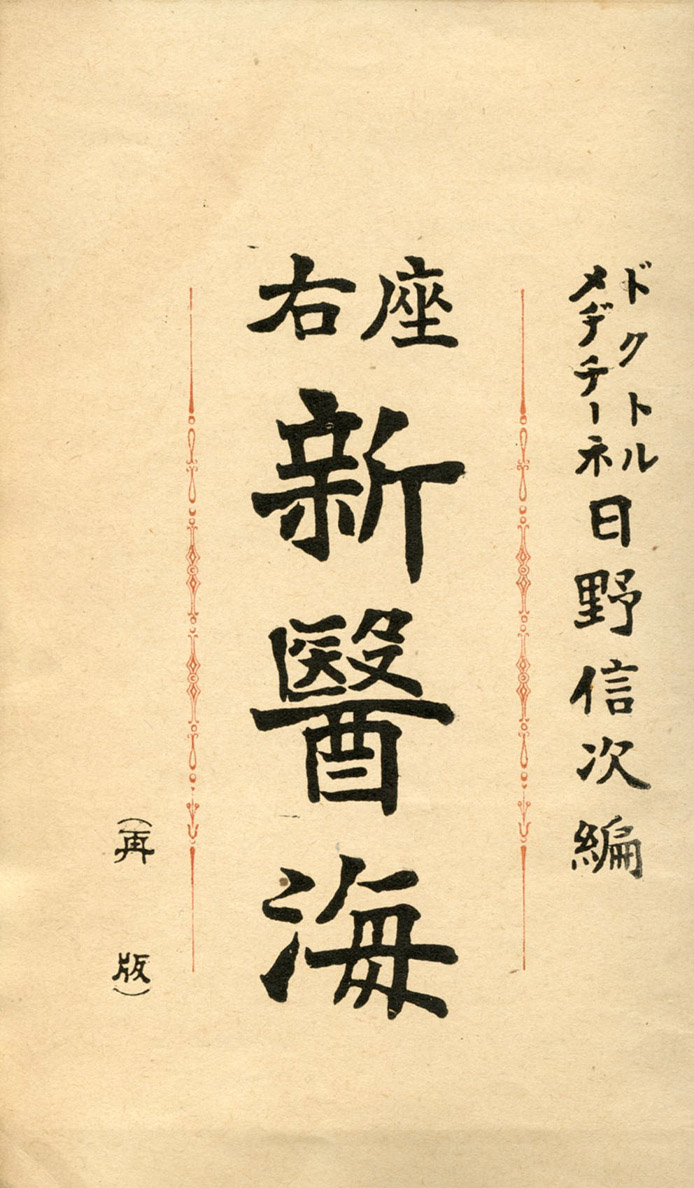 ドクトル
メヂチーネ
日野信次編
座右
新醫海
(再版)